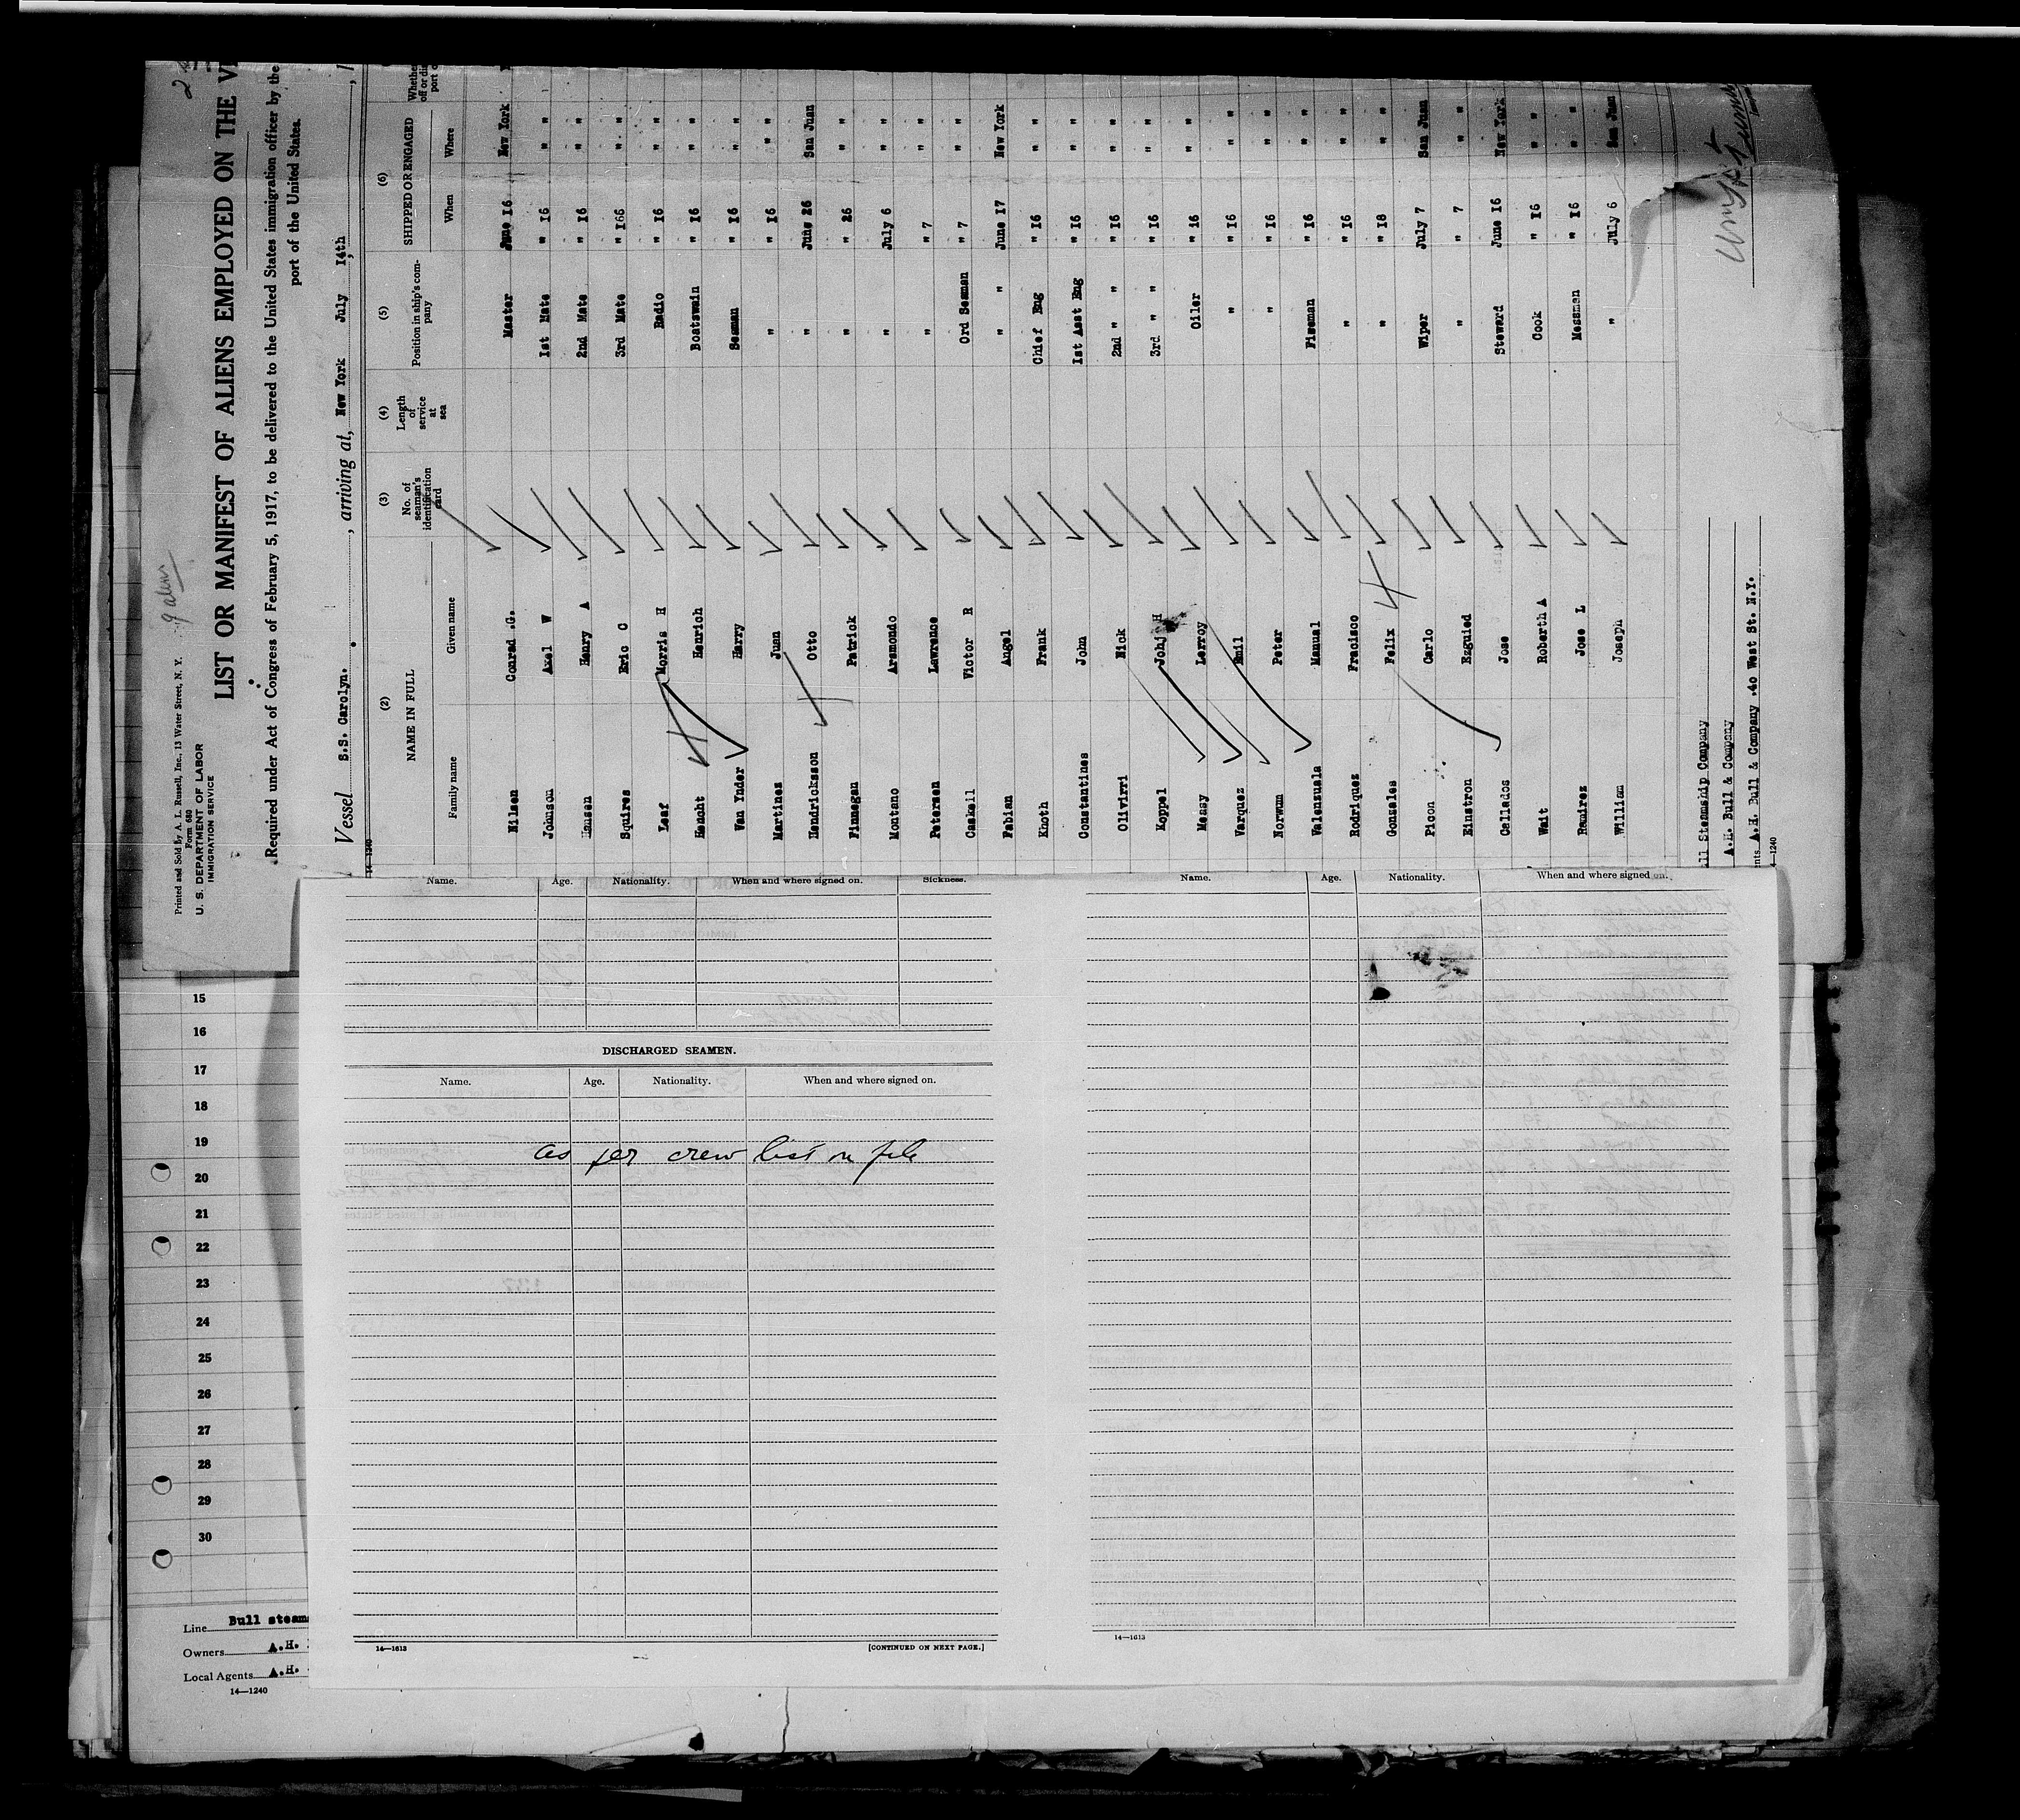 Printed and Sold by A. L. Russell, Inc., 13 Water Street, N. Y.
Form 680
U. S. DEPARTMENT OF LABOR
IMMIGRATION SERVICE
9 aliens
2
LIST OR MANIFEST OF ALIENS EMPLOYED ON THE
Required under Act of Congress of February 5, 1917, to be delivered to the United States immigration officer by the
port of the United States.
Vessel S.S. Carolyn. , arriving at, New York July 14th , 1
14—1240
(2) (3) (4) (5) (6)
NAME IN FULL No. of seaman's identification card Length of service at sea Position in ship's company SHIPPED OR ENGAGED
Family name Given name When Where
Nilsen Conrad .G. Master June 16 New York
Johnson Axel W 1st Mate " 16 " "
Hansen Henry A 2nd Mate " 16 " "
Squires Eric C 3rd Mate " 166 " "
Leaf Morris H Radio " 16 " "
Hencht Henrich Boatswain " 16 " "
Van Ynder Harry Seaman " 16 " "
Martinez Juan " " 16 " "
Hendricksson Otto " June 26 San Juan
Finnegan Patrick " " 26 " "
Montano Aramondo " July 6 " "
Petersen Lawrence " " 7 " "
Caskell Victor R Ord Seaman " 7 " "
Fabian Angel " " June 17 New York
Knoth Frank Chief Eng " 16 " "
Constantines John 1st Asst Eng " 16 " "
Olivirri Nick 2nd " " " 16 " "
Koppel Johj H 3rd " " " 16 " "
Meassy Lerroy Oiler " 16 " "
Varquez Emil " " 16 " "
Norwum Peter " " 16 " "
Valensuela Manual Fireman " 16 " "
Rodriquez Fracisco " " 16 " "
Gonsales Felix " " 18 " "
Picon Carlo Wiper July 7 San Juan
Einstron Ezguied " " 7 " "
Callados Jose Steward June 16 New York
Wait Roberth A Cook " 16 " "
Ramirez Jose L Messman " 16 " "
William Joseph " July 6 San Juan
ll Steamship Company
A.H. Bull & Company
nts A.H. Bull & Company .40 West St. N.Y.
4—1240
Name. Age. Nationality. When and where signed on. Sickness.
DISCHARGED SEAMEN.
Name. Age. Nationality. When and where signed on.
as per crew list on file
14—1613 [CONTINUED ON NEXT PAGE.]
Name. Age. Nationality. When and where signed on.
14—1613
15
16
17
18
19
20
21
22
23
24
25
26
27
28
29
30
Line Bull steam
Owners A.H.
Local Agents A.H.
14—1240